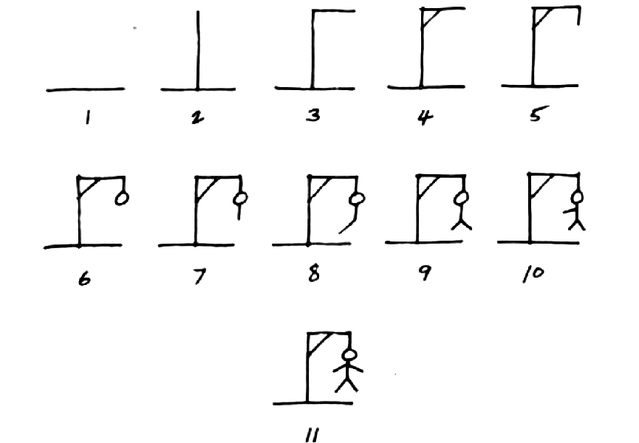 1 2 3 4 5
6 7 8 9 10
11